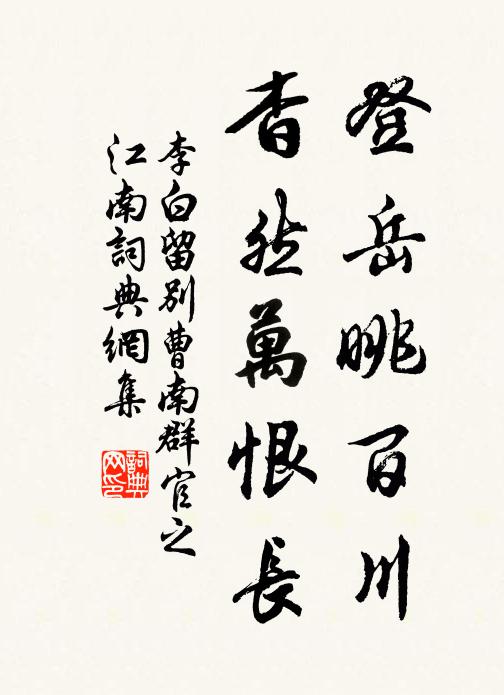 登岳眺百川
杳然萬恨長
李白留别曹南群官之
江南詞典網集
詞典
网印